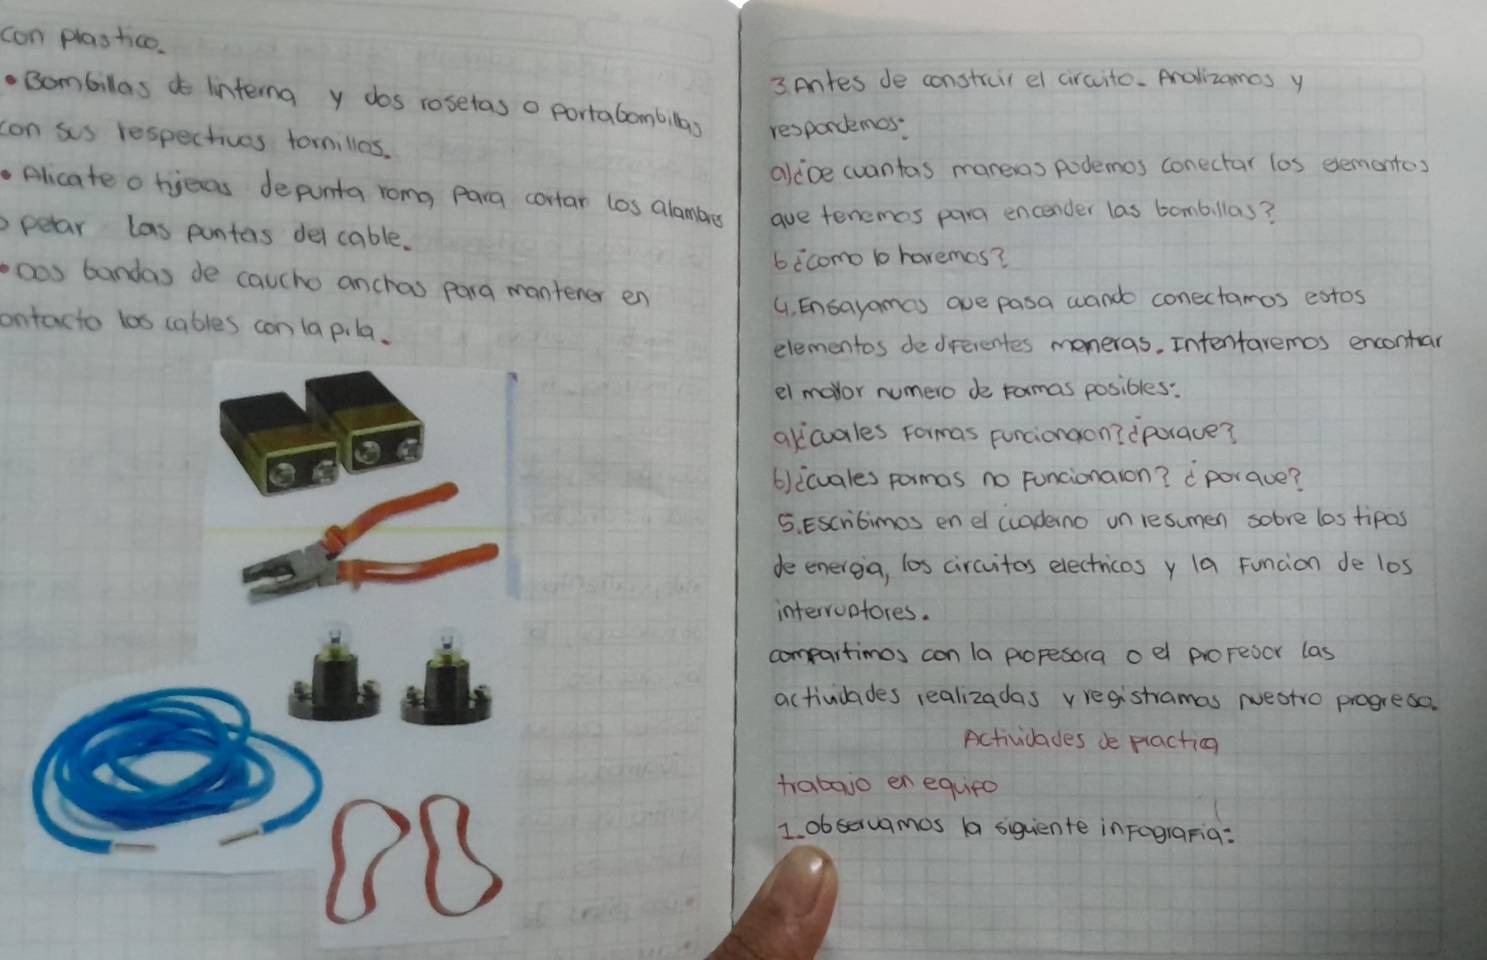 con plastico.
• Bombillas de linterna y dos rosetas o portabombillas
con sus respectivos tornillos.
• Alicate o tijeras de punta roma para cortar los alambres
o pelar las puntas del cable.
• Dos bandas de caucho anchas para mantener en
ontacto los cables con la pila.
3. Antes de construir el circuito. Analizamos y
respondemos:
a) ¿De cuantas maneras podemos conectar los elementos
que tenemos para encender las bombillas?
b ¿como lo haremos?
4. Ensayamos que pasa cuando conectamos estos
elementos de diferentes maneras. Intentaremos encontrar
el mayor numero de formas posibles:
a) ¿cuales formas funcionaron? ¿porque?
b) ¿cuales formas no funcionaron? ¿ porque?
5. Escribimos en el cuaderno un resumen sobre los tipos
de energia, los circuitos electricos y la funcion de los
interruptores.
compartimos con la profesora o el profesor las
actividades realizadas y registramos nuestro progreso.
Actividades de practica
trabajo en equipo
1. observamos la siguiente infografia: